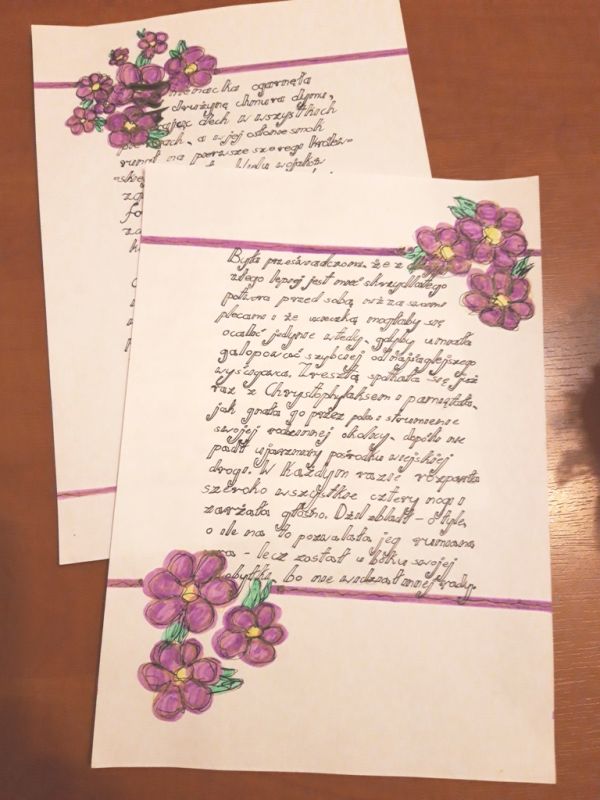 ogarnęła
drużynę chmura dymu,
dech w wszystkich
a w jej osłonie smok
runął na pierwsze szeregi
Była przeświadczona, że z
złego lepiej jest mieć skrzydlatego
potwora przed sobą niż za swoimi
plecami i że ucieczką mogłaby się
ocalić jedynie wtedy, gdyby umiała
galopować szybciej od
wyścigowca. Zresztą spotkała się już
raz z Chrystophylaksem i pamiętała,
jak gnała go przez pola i strumienie
swojej rodzinnej okolicy, dopóki nie
padł ujarzmiony pośrodku wiejskiej
drogi. W każdym razie rozparła
szeroko wszystkie cztery nogi i
zarżała głośno. Dżil zbladł - o tyle,
o ile na to pozwalała jego rumiana
- lecz został u boku swojej
bo nie widział innej rady.